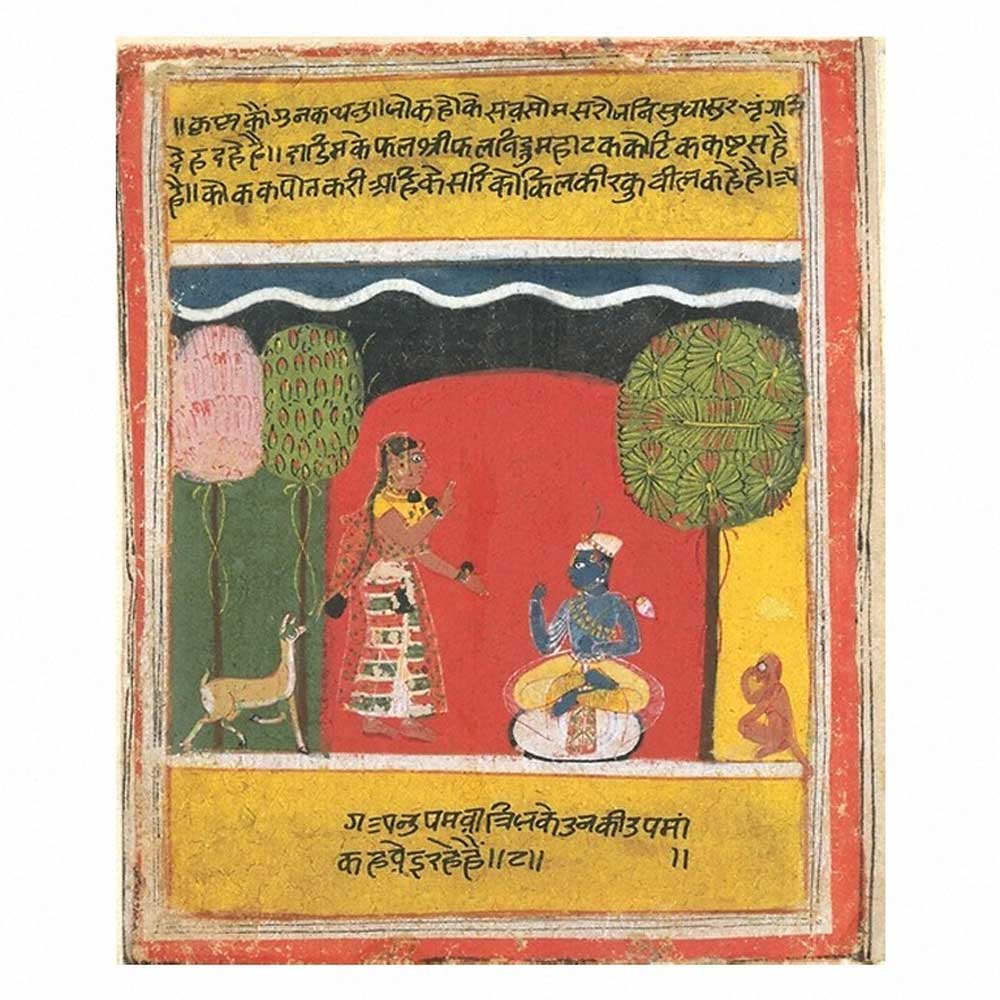 ॥कृष्न कौ गुनकथनु॥जो कहो केसव सोम सरोजनि सुधासुर भृंगनि
देह दहे है॥दाडिम के फल श्रीफल विद्रुम हाटक कोटिक कष्ट स है
है॥कोक कपोत करी अहि केसरि कोकिल कीर कुचील कहे है॥अं
ग अनुपम वा त्रिय के उनकी उपमां
कह वेइ रहे हैं॥८॥ ॥